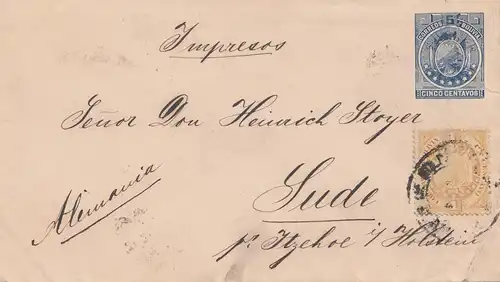 Impresos
CORREOS DE BOLIVIA
CINCO CENTAVOS
Señor Don Heinrich Stoyer
Sude
Alemania
pr. Itzehoe i/Holstein